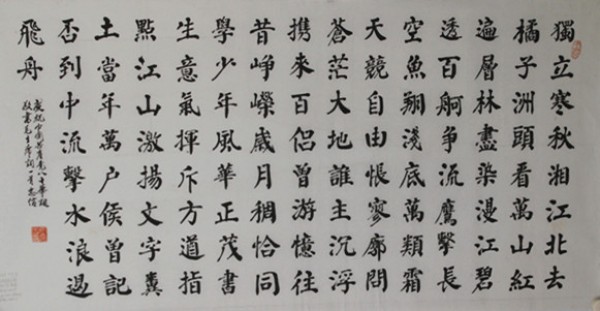 獨立寒秋湘江北去
橘子洲頭看萬山紅
遍層林盡染漫江碧
透百舸争流鷹擊長
空魚翔淺底萬類霜
天競自由悵寥廓問
蒼茫大地誰主沉浮
携來百侣曾游憶往
昔崢嶸歲月稠恰同
學少年風華正茂書
生意氣揮斥方道指
點江山激揚文字糞
土當年萬户侯曾記
否到中流擊水浪遏
飛舟
慶祝中國共產黨八十華誕
敬書毛主席詞一首